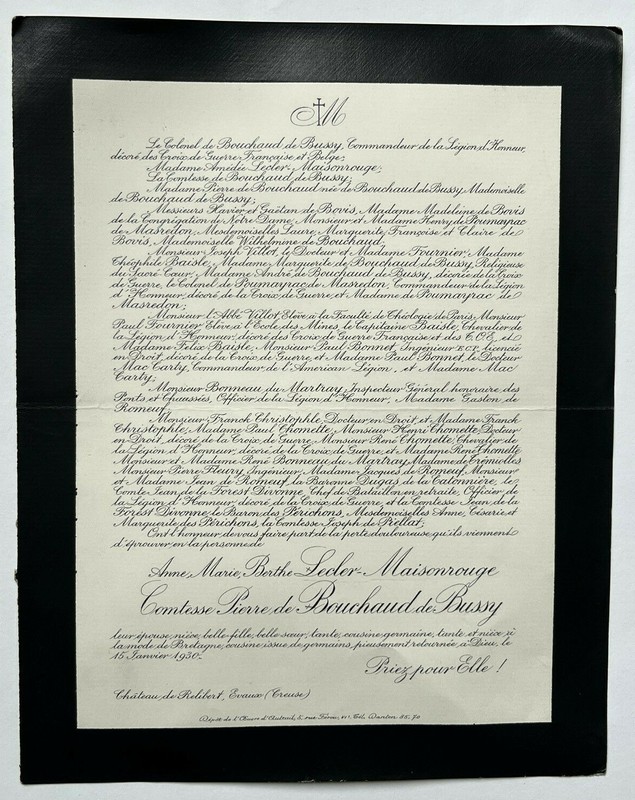 M
Le Colonel de Bouchaud de Bussy, Commandeur de la Légion d'Honneur,
décoré des Croix de Guerre Française et Belge;
Madame Amédée Lecler-Maisonrouge;
La Comtesse de Bouchaud de Bussy;
Madame Pierre de Bouchaud née de Bouchaud de Bussy, Mademoiselle
de Bouchaud de Bussy;
Messieurs Xavier et Gaëtan de Bovis, Madame Madeleine de Bovis
de la Congrégation de Notre Dame, Monsieur et Madame Henry de Poumayrac
de Masredon, Mesdemoiselles Laure, Marguerite, Françoise et Claire de
Bovis, Mademoiselle Wilhelmine de Bouchaud;
Monsieur Joseph Villot, le Docteur et Madame Fournier, Madame
Théophile Baisle, Madame Marguerite de Bouchaud de Bussy, Religieuse
du Sacré Cœur, Madame André de Bouchaud de Bussy, décorée de la Croix
de Guerre, le Colonel de Poumayrac de Masredon, Commandeur de la Légion
d'Honneur, décoré de la Croix de Guerre, et Madame de Poumayrac de
Masredon;
Monsieur l'Abbé Villot, Elève à la Faculté de Théologie de Paris, Monsieur
Paul Fournier Elève à l'Ecole des Mines, le Capitaine Baisle, Chevalier de
la Légion d'Honneur, décoré des Croix de Guerre Française et des T.O.E., et
Madame Félix Baisle, Monsieur Paul Bonnet, Ingénieur E.C.P., licencié
en Droit, décoré de la Croix de Guerre, et Madame Paul Bonnet, le Docteur
Mac Carty, Commandeur de l'American Légion, et Madame Mac
Carty;
Monsieur Bonneau du Martray, Inspecteur Général honoraire des
Ponts et Chaussées, Officier de la Légion d'Honneur, Madame Gaston de
Romeuf;
Monsieur Franck Christophle, Docteur en Droit, et Madame Franck
Christophle, Madame Paul Chomette, Monsieur Henri Chomette, Docteur
en Droit, décoré de la Croix de Guerre, Monsieur René Chomette, Chevalier de
la Légion d'Honneur, décoré de la Croix de Guerre, et Madame René Chomette
Monsieur et Madame René Bonneau du Martray, Madame de Crémiolles
Monsieur Pierre Fleury, Ingénieur, Madame Jacques de Romeuf, Monsieur
et Madame Jean de Romeuf, la Baronne Dugas de la Catonnière, le
Comte Jean de la Forest Divonne, Chef de Bataillon en retraite, Officier de
la Légion d'Honneur, décoré de la Croix de Guerre, et la Comtesse Jean de la
Forest Divonne, le Baron des Périchons, Mesdemoiselles Anne, Césarie et
Marguerite des Périchons, la Comtesse Joseph de Prellat;
Ont l'honneur de vous faire part de la perte douloureuse qu'ils viennent
d'éprouver en la personne de
Anne, Marie, Berthe Lecler-Maisonrouge
Comtesse Pierre de Bouchaud de Bussy
leur épouse, nièce, belle-fille, belle-sœur, tante, cousine germaine, tante et nièce à
la mode de Bretagne, cousine issue de germains, pieusement retournée à Dieu, le
15 Janvier 1930.
Priez pour Elle !
Château de Relibert, Evaux (Creuse)
Dépôt de l'Œuvre d'Auteuil, 5, rue Férou, Tél. Danton